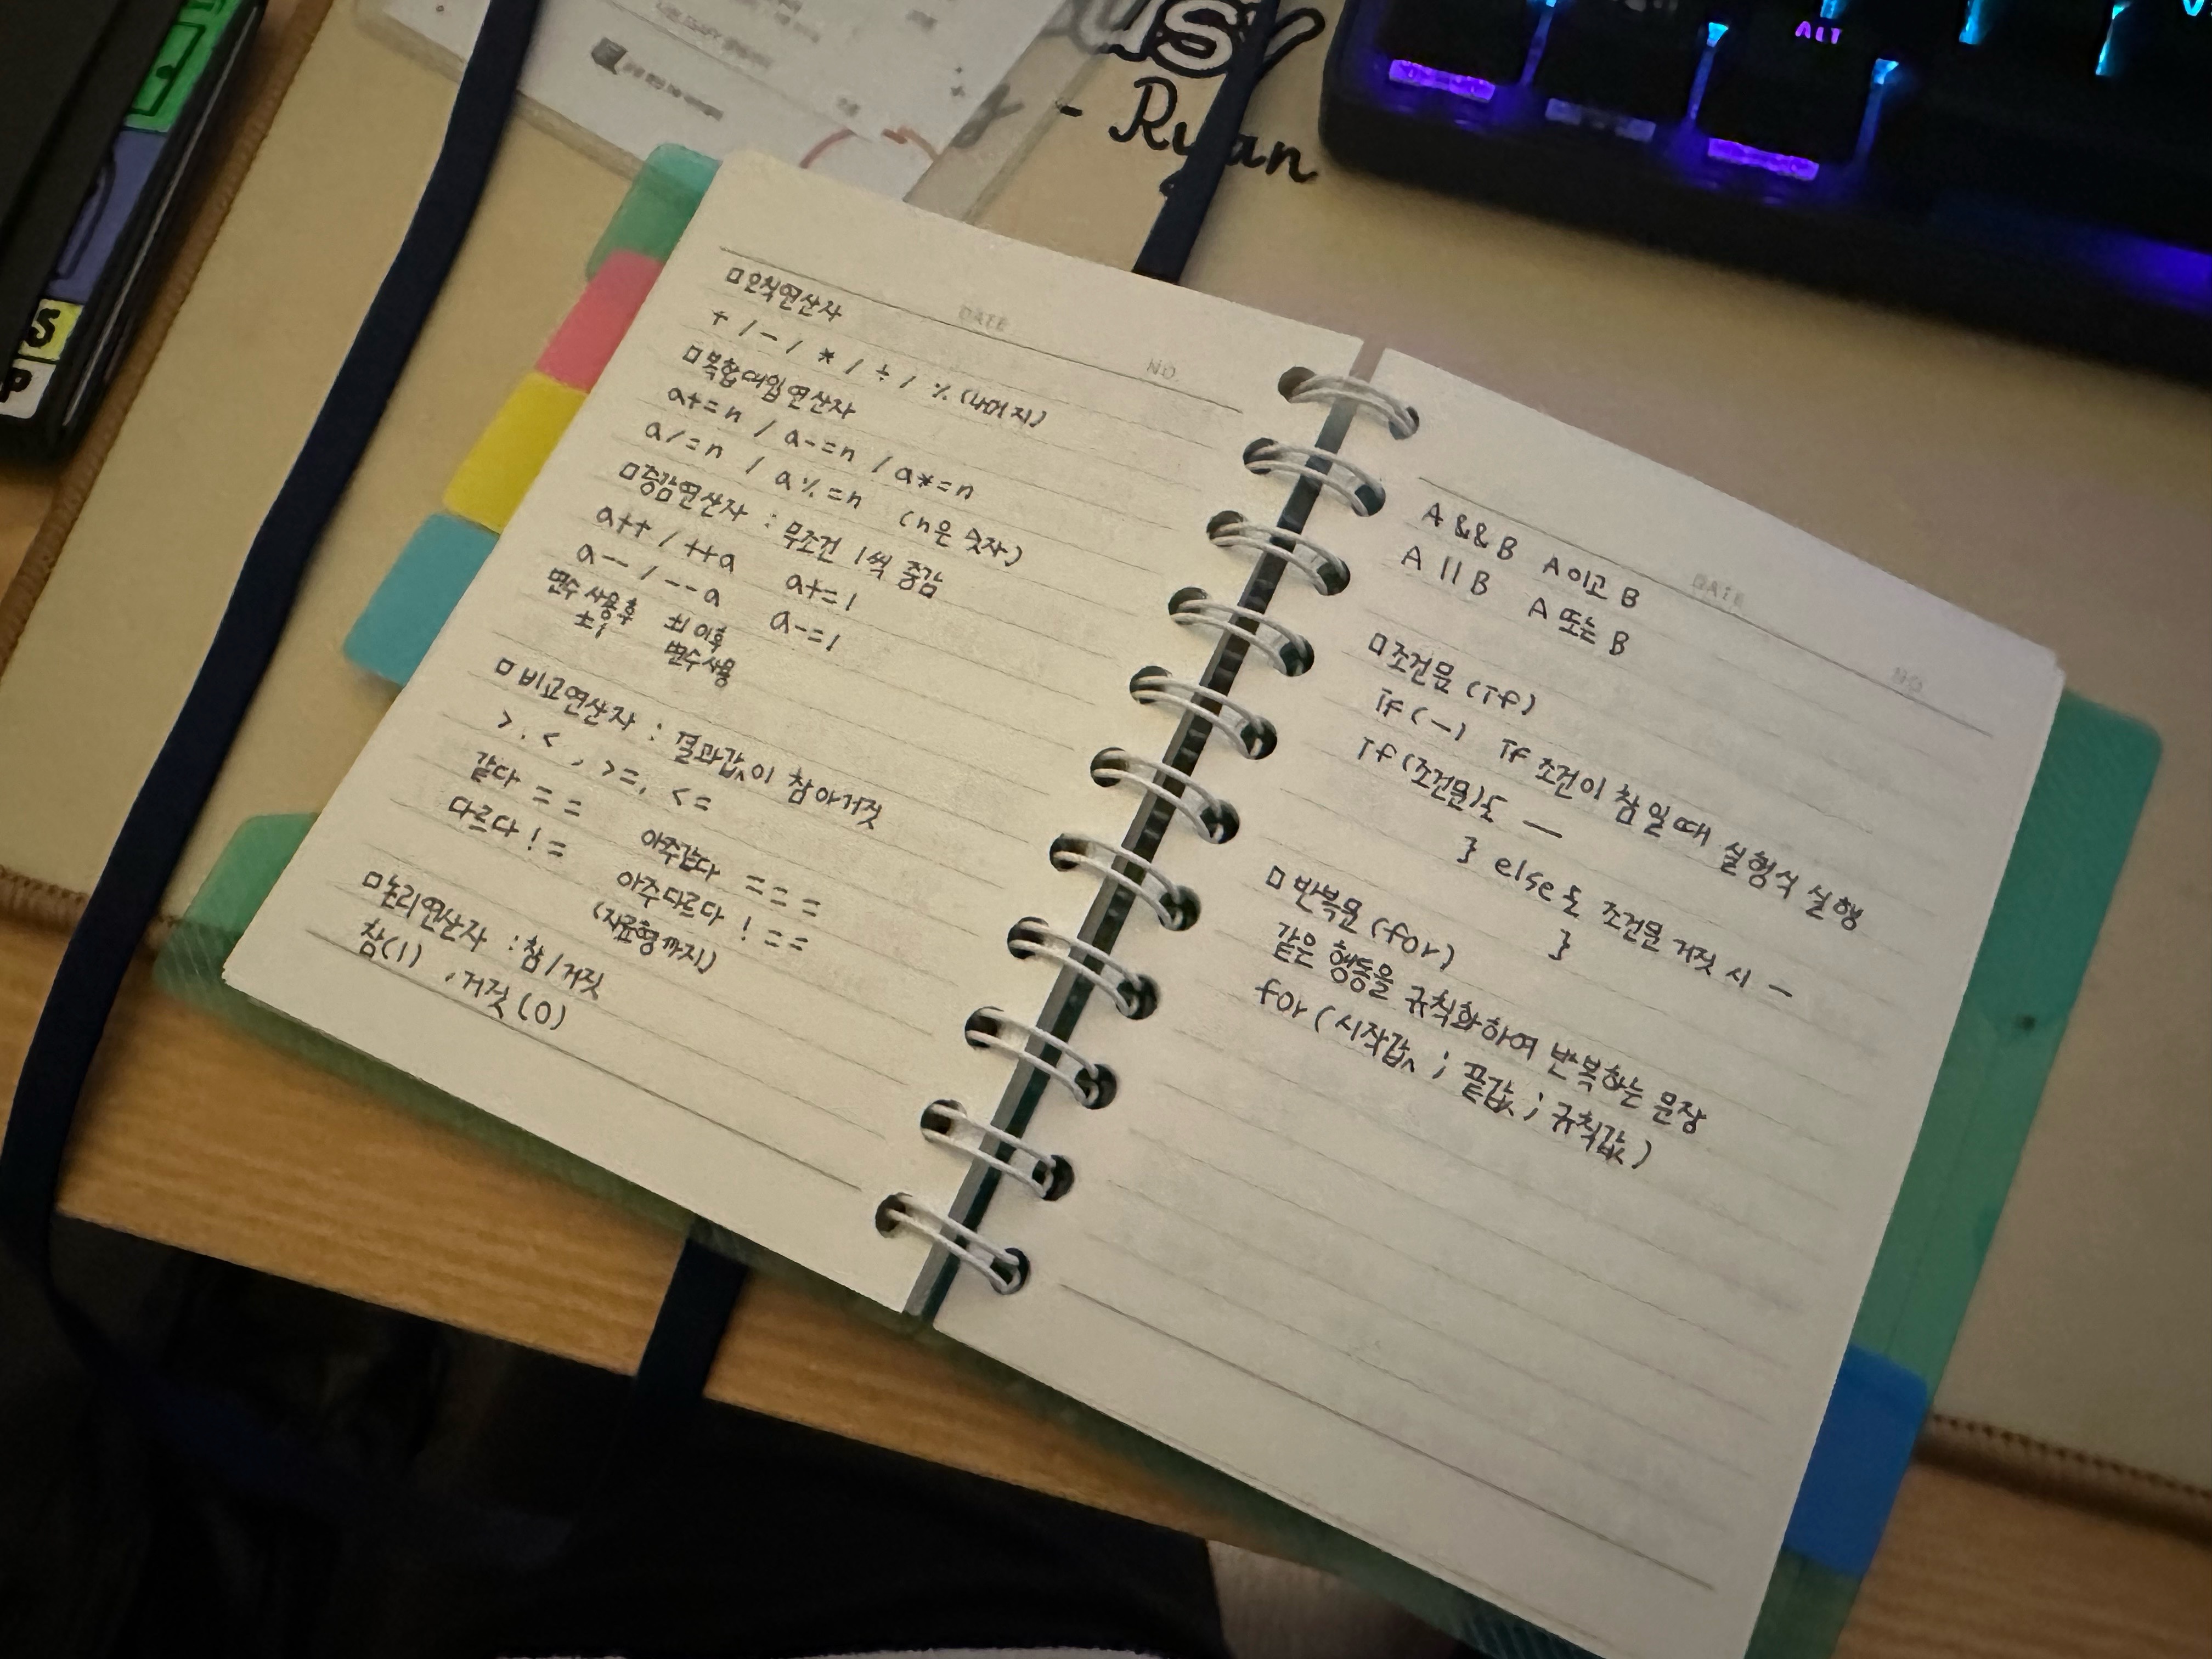 usy
- Ryan
ALT
S
P
DATE
NO.
□오칙연산자
+ / - / * / ÷ / % (나머지)
□복합대입연산자
a+=n / a-=n / a*=n
a/=n / a%=n (n은 숫자)
□증감연산자 : 무조건 1씩 증감
a++ / ++a a+=1
a-- / --a a-=1
변수 사용 후 ±1 이후
±1 변수 사용
□ 비교연산자 : 결과값이 참 아 거짓
>, <, >=, <=
같다 == 아주같다 ===
다르다 != 아주 다르다 !==
(자료형까지)
□논리연산자 : 참/거짓
참(1), 거짓(0)
DATE
NO.
A && B A이고 B
A || B A 또는 B
□조건문 (if)
if (-) if 조건이 참일때 실행식 실행
if (조건문){ —
} else { 조건문 거짓 시 -
}
□ 반복문 (for)
같은 행동을 규칙화하여 반복하는 문장
for (시작값 ; 끝값 ; 규칙값)